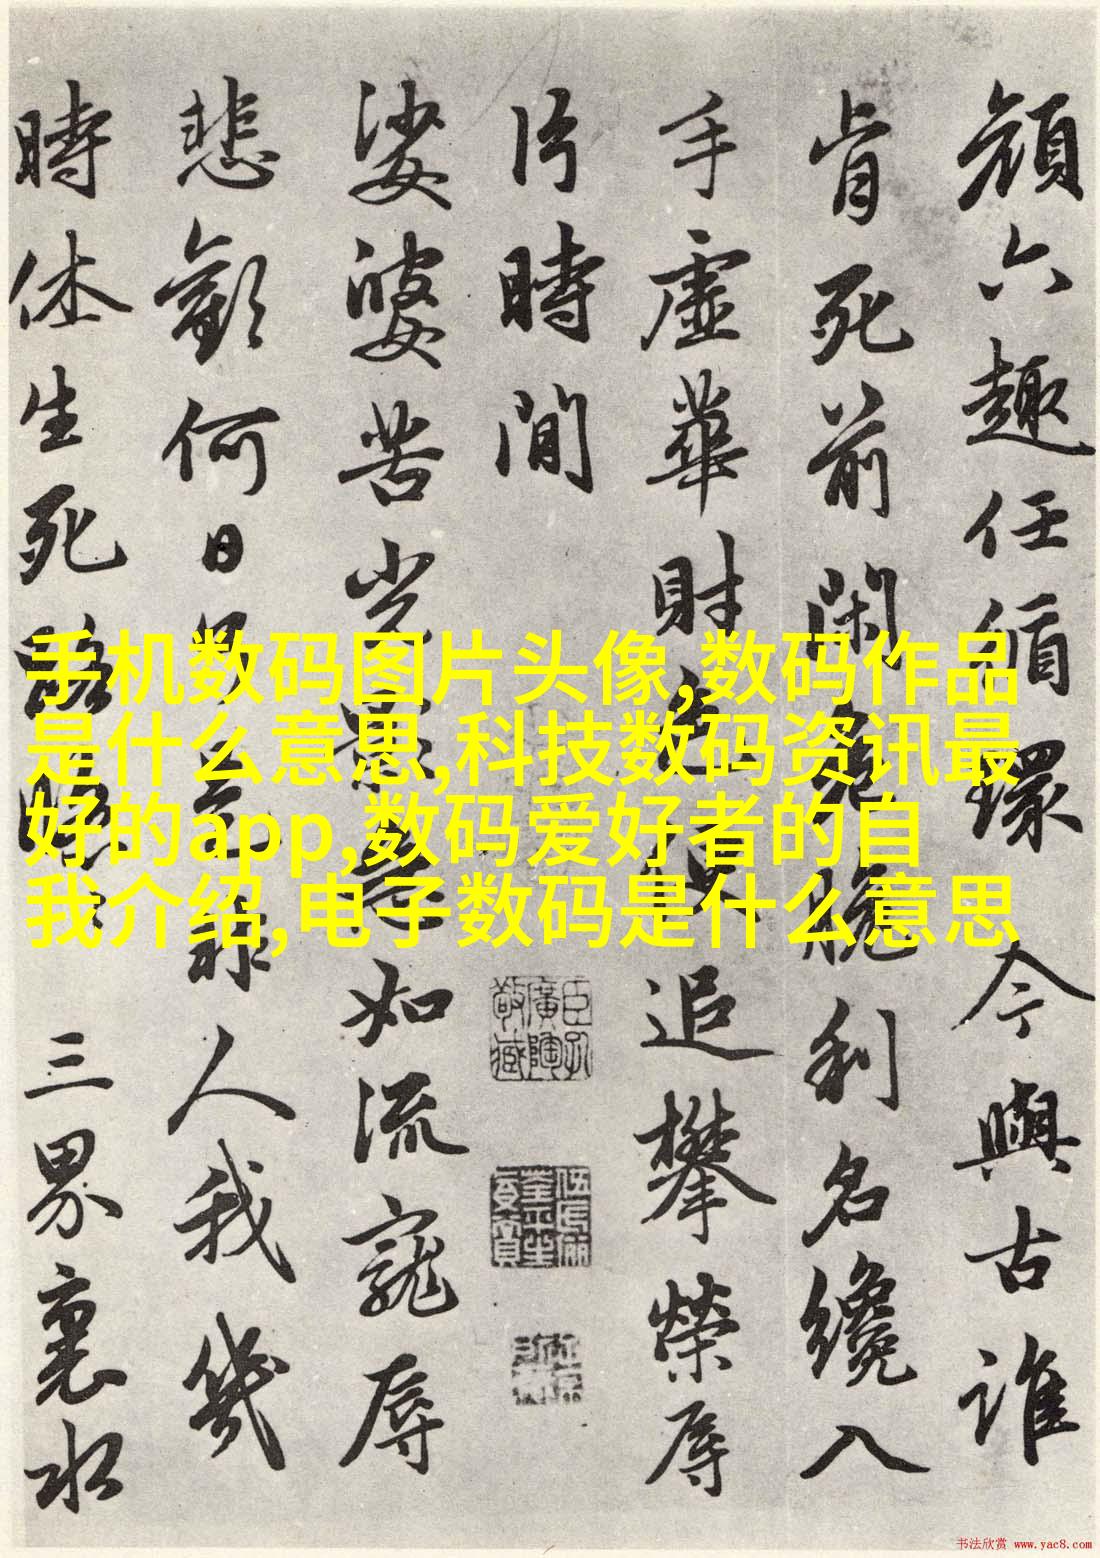 六趣任循環 今與古誰
肯死前閑危脆利名纔入
手虛華財色便追攀榮辱
片時間
娑婆苦光景急如流寵辱
悲歡何日了是非人我幾
時休生死路 三界裏水
手机数码图片头像,数码作品
是什么意思,科技数码资讯最
好的app,数码爱好者的自
我介绍,电子数码是什么意思
书法欣赏 www.yac8.com